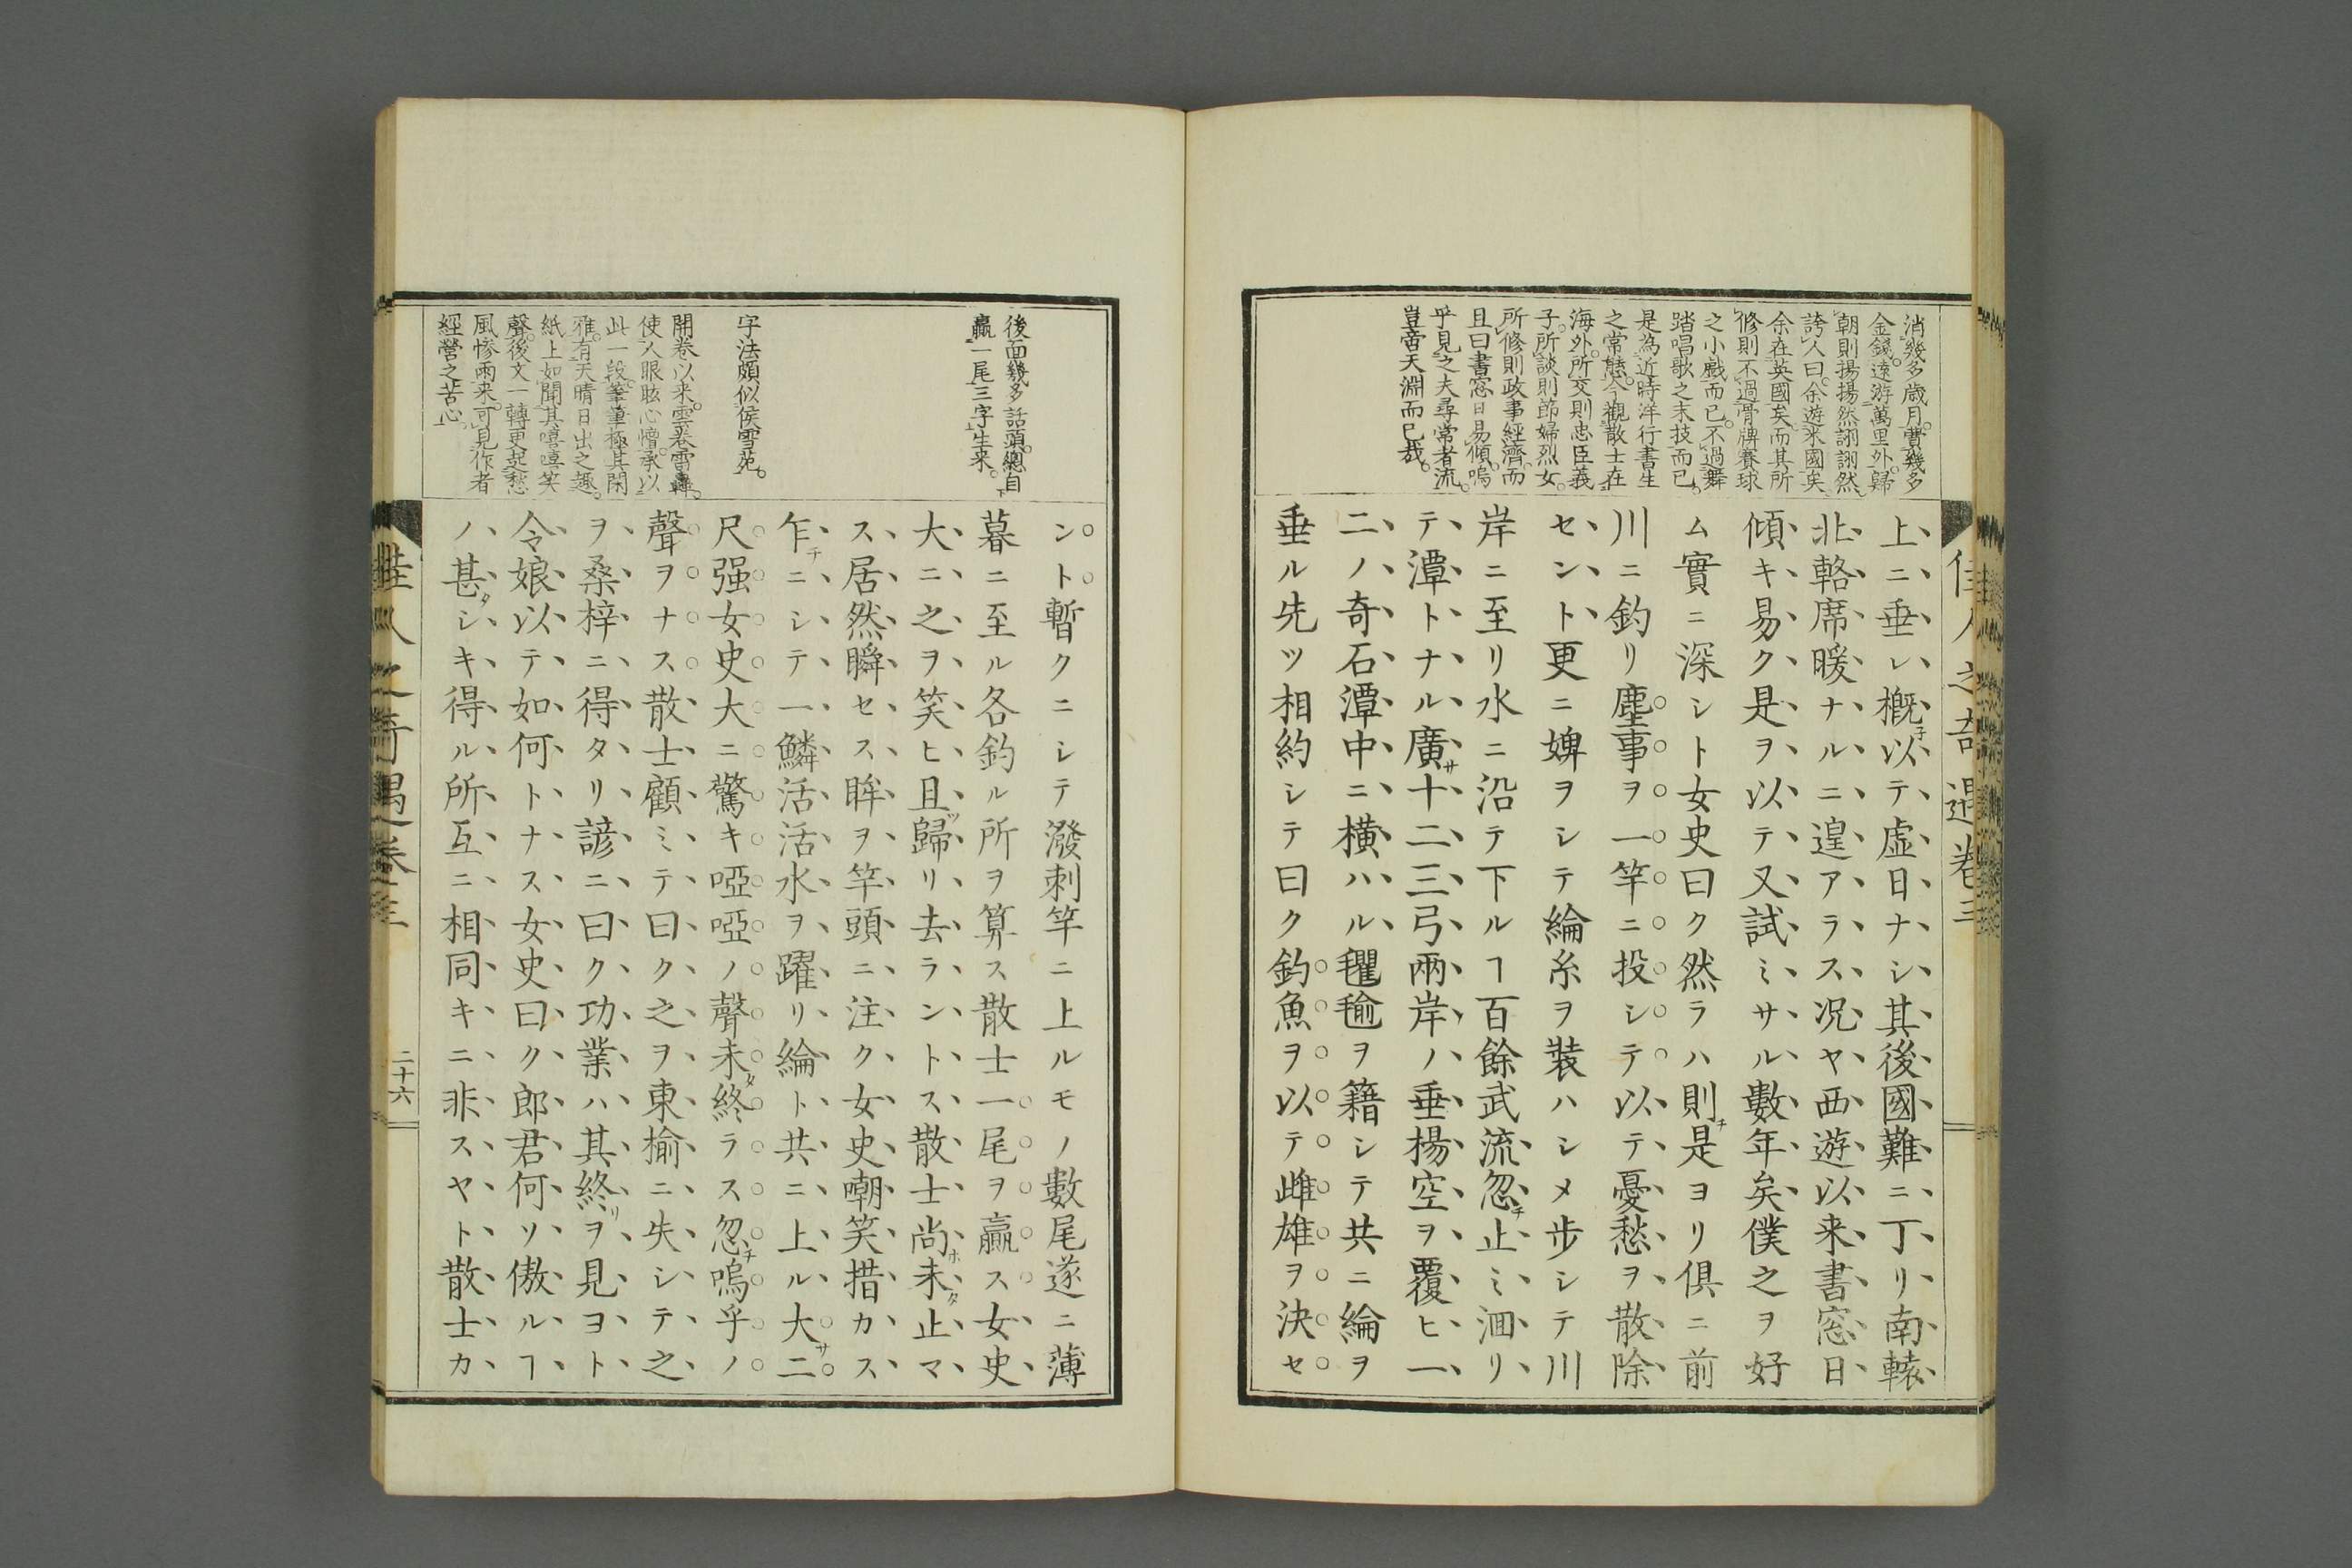 佳人之奇遇卷三
消幾多歳月費幾多
金錢遠游萬里外歸
朝則揚揚然詡詡然
誇人曰余遊米國矣
余在英國矣而其所
修則不過骨牌賽球
之小戲而已不過舞
踏唱歌之末技而已
是為近時洋行書生
之常態今觀散士在
海外所交則忠臣義
子所談則節婦烈女
所修則政事經濟而
且曰書窓日易傾嗚
乎見之夫尋常者流
豈啻天淵而已哉
上ニ垂レ概子以テ虚日ナシ其後國難ニ丁リ南轅
北輅席暖ナルニ遑アラス况ヤ西遊以来書窓日
傾キ易ク是ヲ以テ又試ミサル數年矣僕之ヲ好
ム實ニ深シト女史曰ク然ラハ則チ是ヨリ倶ニ前
川ニ釣リ塵事ヲ一竿ニ投シテ以テ憂愁ヲ散除
セント更ニ婢ヲシテ綸糸ヲ裝ハシメ歩シテ川
岸ニ至リ水ニ沿テ下ルヿ百餘武流忽チ止ミ洄リ
テ潭トナル廣サ十二三弓兩岸ノ垂楊空ヲ覆ヒ一
二ノ奇石潭中ニ横ハル氍毹ヲ籍シテ共ニ綸ヲ
垂ル先ツ相約シテ曰ク釣魚ヲ以テ雌雄ヲ決セ
後面幾多話頭總自
贏一尾三字生来
字法頗似侯雪苑
開卷以来雲卷雷轟
使人眼眩心懵承以
此一段筆筆極其閑
雅有天晴日出之趣
紙上如聞其嘻嘻笑
聲後文一轉更起愁
風慘雨来可見作者
經營之苦心
ント暫クニシテ潑刺竿ニ上ルモノ數尾遂ニ薄
暮ニ至ル各釣ル所ヲ算ス散士一尾ヲ贏ス女史
大ニ之ヲ笑ヒ且ツ歸リ去ラントス散士尚ホ未タ止マ
ス居然瞬セス眸ヲ竿頭ニ注ク女史嘲笑措カス
乍チニシテ一鱗活活水ヲ躍リ綸ト共ニ上ル大サ二
尺强女史大ニ驚キ啞啞ノ聲未タ終ラス忽チ嗚乎ノ
聲ヲナス散士顧ミテ曰ク之ヲ東楡ニ失シテ之
ヲ桑梓ニ得タリ諺ニ曰ク功業ハ其終リヲ見ヨト
令娘以テ如何トナス女史曰ク郎君何ソ傲ルヿ
ノ甚タシキ得ル所互ニ相同キニ非スヤト散士カ
佳人之奇遇卷三
二十六